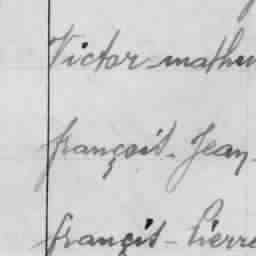 Victor-mathu
françois-Jean-
françois-Pierre